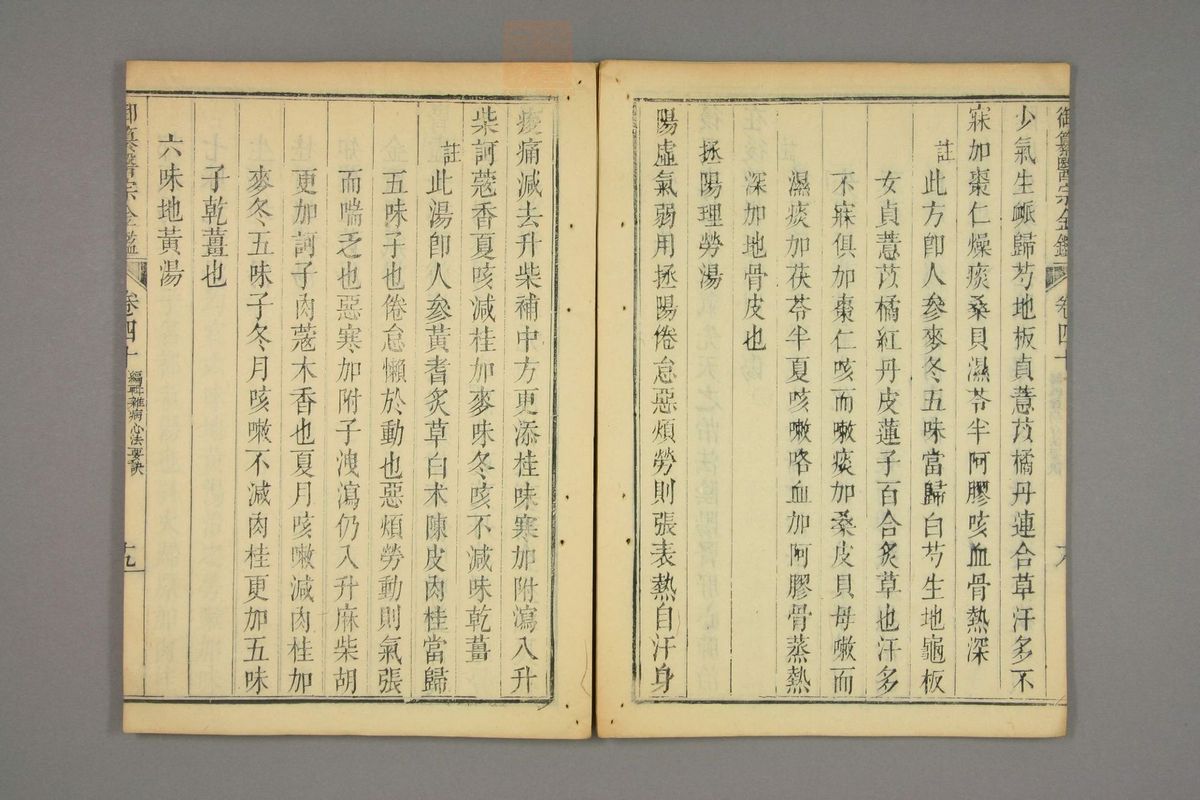 御纂醫宗金鑑 卷四十 八
少氣生衇歸芍地板貞薏苡橘丹連合草汗多不
寐加棗仁燥痰桑貝濕苓半阿膠咳血骨熱深
註
此方卽人參麥冬五味當歸白芍生地龜板
女貞薏苡橘紅丹皮蓮子百合炙草也汗多
不寐俱加棗仁咳而嗽痰加桑皮貝母嗽而
濕痰加茯苓半夏咳嗽咯血加阿膠骨蒸熱
深加地骨皮也
拯陽理勞湯
陽虛氣弱用拯陽倦怠惡煩勞則張表熱自汗身
痠痛減去升柴補中方更添桂味寒加附瀉入升
柴訶蔻香夏咳減桂加麥味冬咳不減味乾薑
註
此湯卽人參黃耆炙草白朮陳皮肉桂當歸
五味子也倦怠懶於動也惡煩勞動則氣張
而喘乏也惡寒加附子洩瀉仍入升麻柴胡
更加訶子肉蔻木香也夏月咳嗽減肉桂加
麥冬五味子冬月咳嗽不減肉桂更加五味
子乾薑也
六味地黃湯
御纂醫宗金鑑 卷四十 編輯雜病心法要訣 九